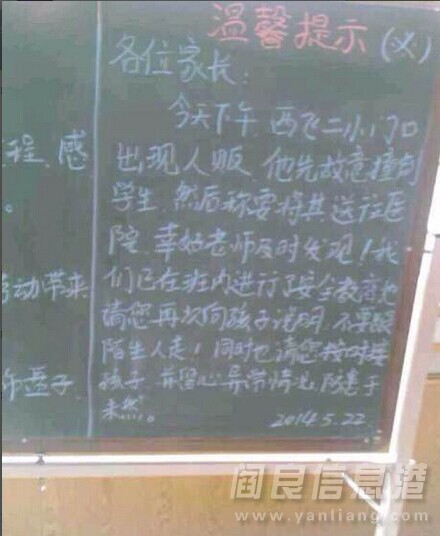 温馨提示(父)
各位家长:
今天下午 西飞二小门口
出现人贩,他先故意撞向
学生,然后称要将其送往医
院,幸好老师及时发现!我
们已在班内进行了安全教育也
请您再次向孩子说明,不要跟
陌生人走!同时也请您按时接
孩子,并留心异常情况,防患于
未然。
2014.5.22
程、感
。
动带来
阎良信息港
www.yanliang.com